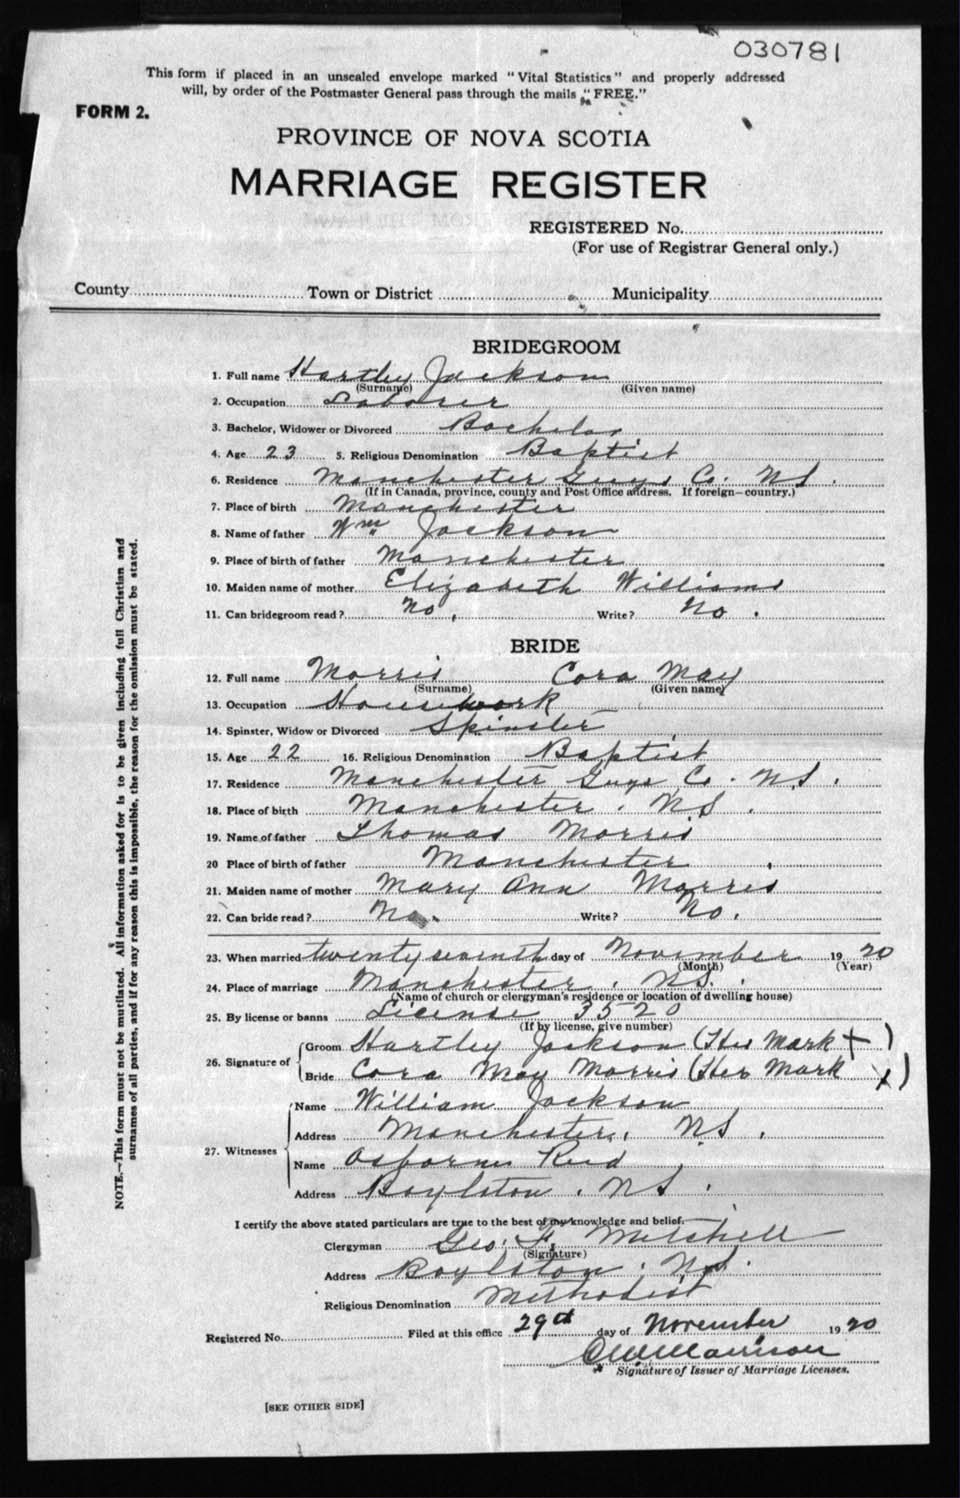 030781
This form if placed in an unsealed envelope marked "Vital Statistics" and properly addressed
will, by order of the Postmaster General pass through the mails "FREE."
FORM 2.
PROVINCE OF NOVA SCOTIA
MARRIAGE REGISTER
REGISTERED No.
(For use of Registrar General only.)
County Town or District Municipality
BRIDEGROOM
1. Full name Hartley Jackson
(Surname) (Given name)
2. Occupation Laborer
3. Bachelor, Widower or Divorced Bachelor
4. Age 23 5. Religious Denomination Baptist
6. Residence Manchester Guys Co. N S.
(If in Canada, province, county and Post Office address. If foreign—country.)
7. Place of birth Manchester
8. Name of father Wm Jackson
9. Place of birth of father Manchester
10. Maiden name of mother Elizabeth Williams
11. Can bridegroom read? No. Write? No.
BRIDE
12. Full name Morris Cora May
(Surname) (Given name)
13. Occupation Housework
14. Spinster, Widow or Divorced Spinster
15. Age 22 16. Religious Denomination Baptist
17. Residence Manchester Guys Co. N S.
18. Place of birth Manchester. N S.
19. Name of father Thomas Morris
20 Place of birth of father Manchester
21. Maiden name of mother Mary Ann Morris
22. Can bride read? No. Write? No.
23. When married twenty seventh day of November 1920
(Month) (Year)
24. Place of marriage Manchester. N S.
(Name of church or clergyman's residence or location of dwelling house)
25. By license or banns License 3520
(If by license, give number)
26. Signature of Groom Hartley Jackson (His Mark X)
Bride Cora May Morris (Her Mark X)
27. Witnesses Name William Jackson
Address Manchester. N S.
Name Osborne Reid
Address Boylston. N S.
I certify the above stated particulars are true to the best of my knowledge and belief.
Clergyman Geo. F. Mitchell
(Signature)
Address Boylston. N S.
Religious Denomination Methodist
Registered No. Filed at this office 29th day of November 1920
Signature of Issuer of Marriage Licenses.
[SEE OTHER SIDE]
NOTE.—This form must not be mutilated. All information asked for is to be given including full Christian and
surnames of all parties, and if for any reason this is impossible, the reason for the omission must be stated.